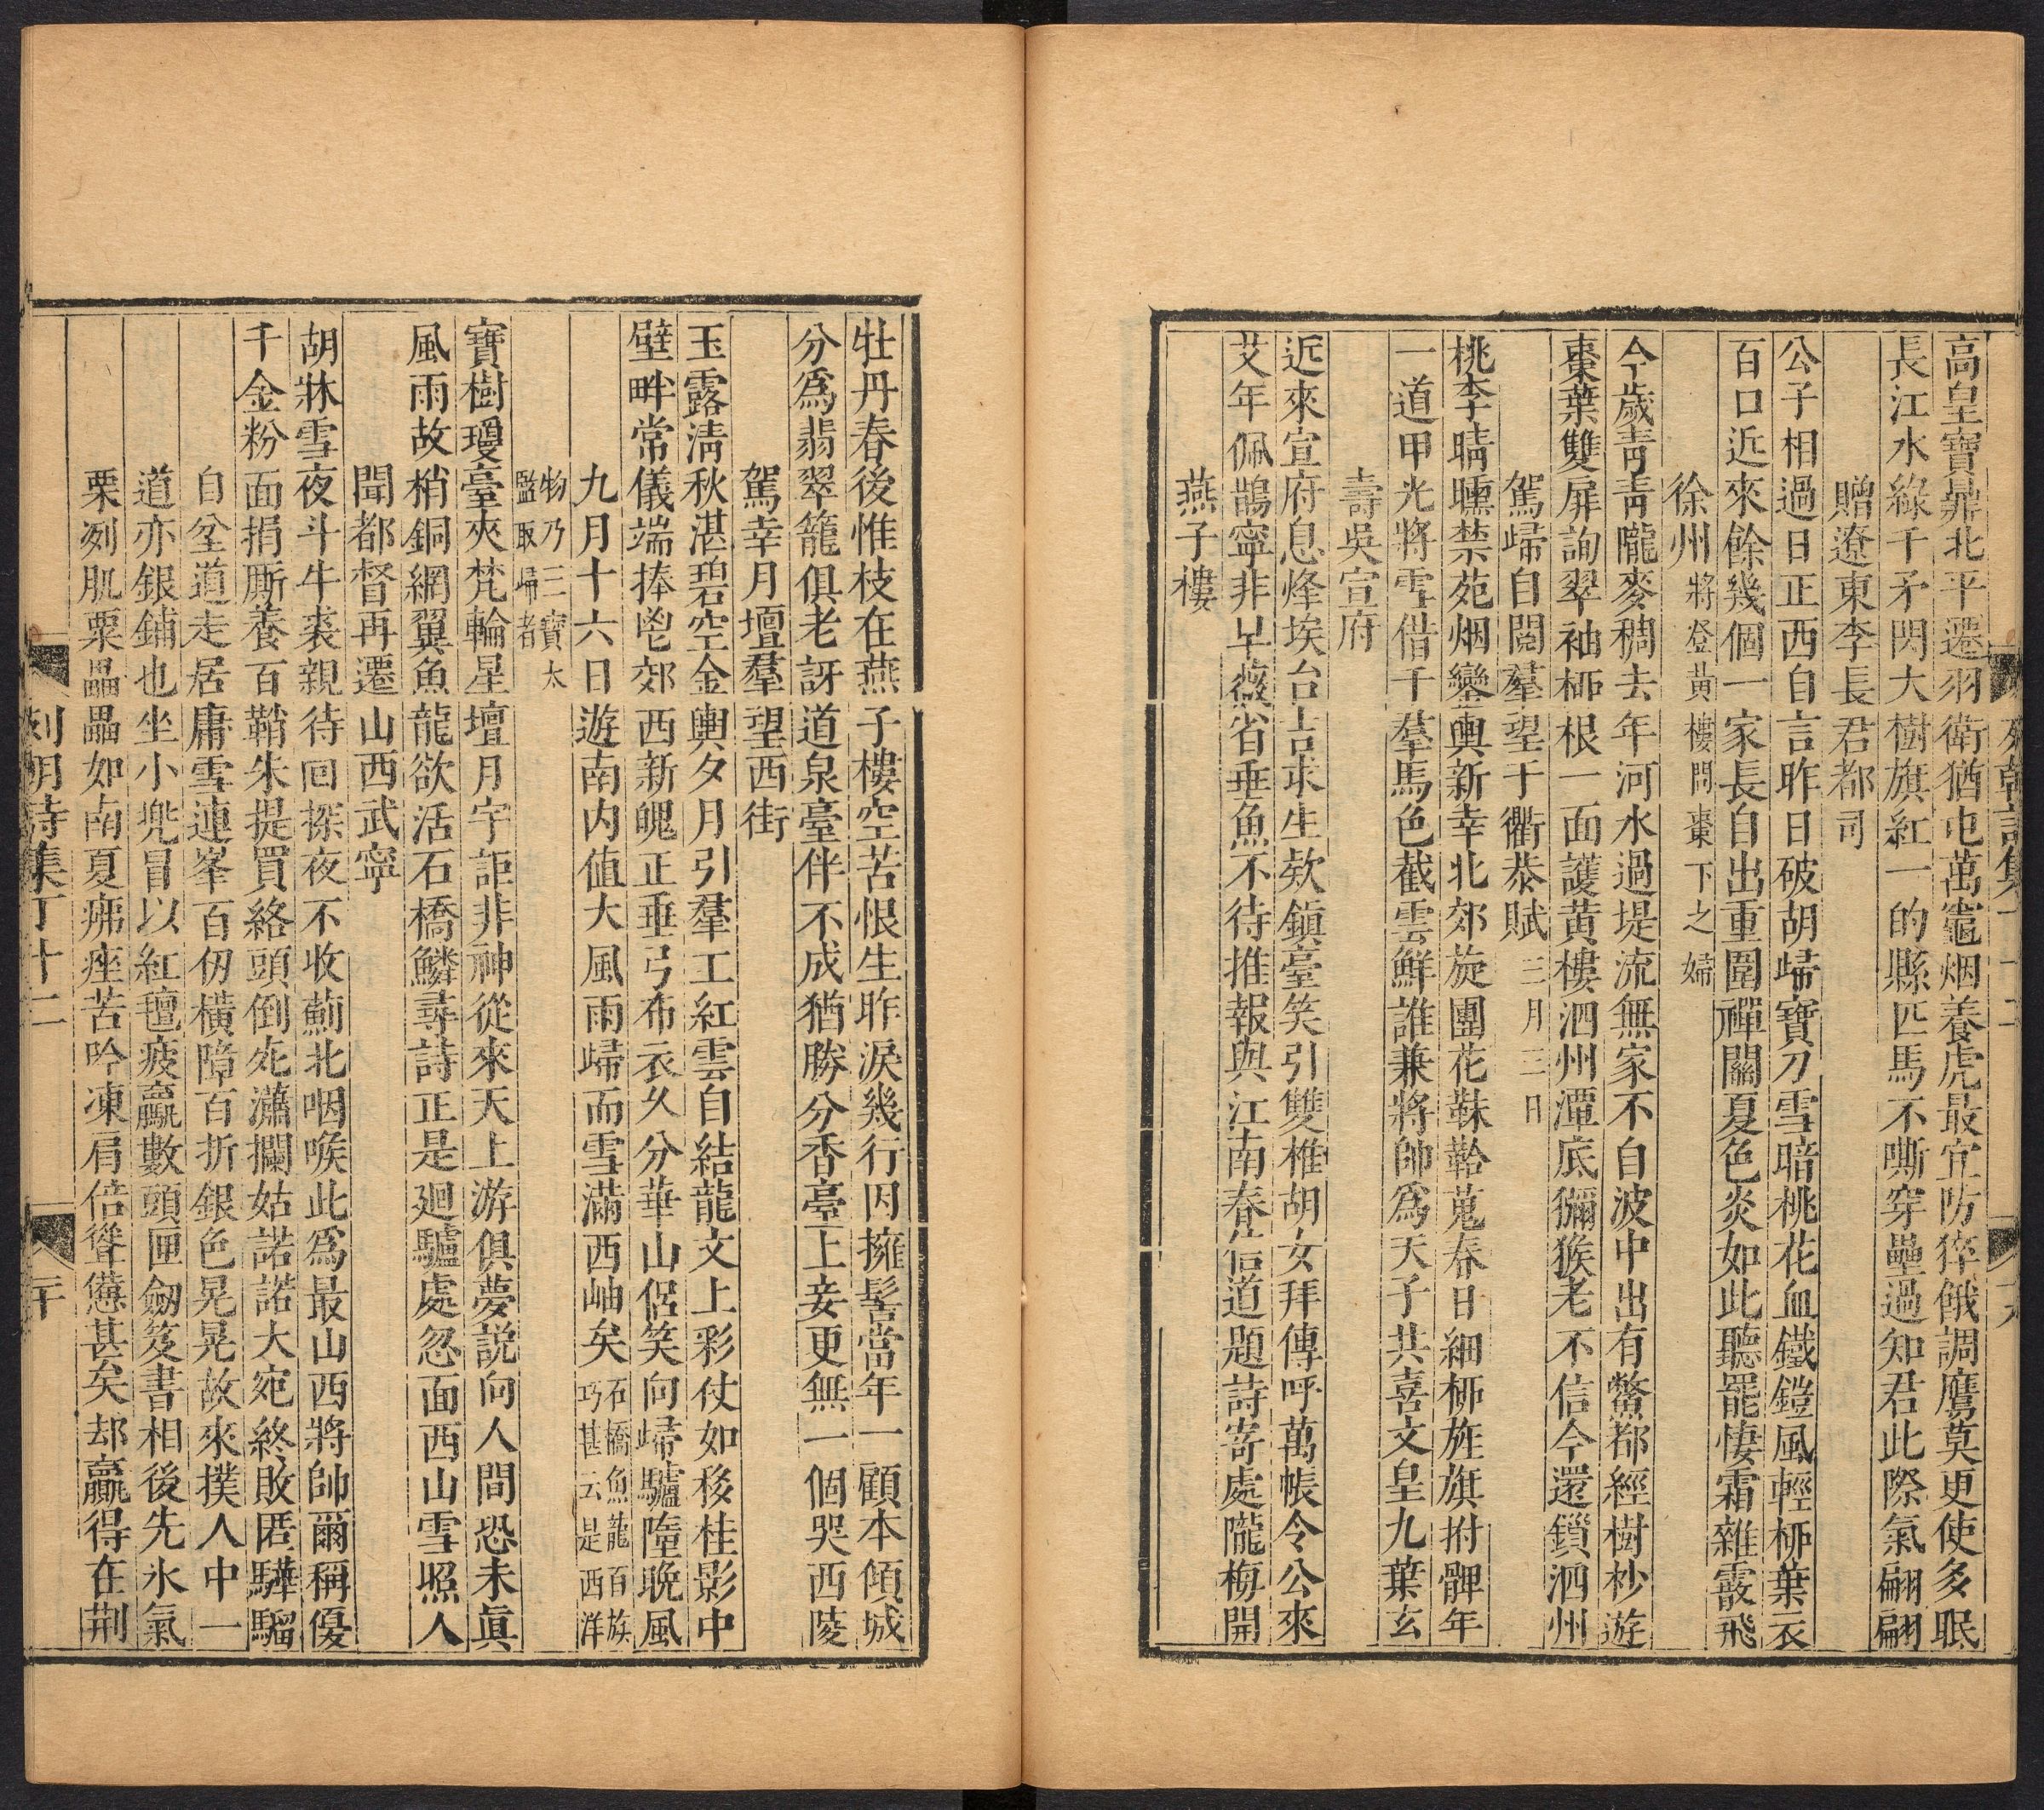 高皇寶鼎北平遷羽衛猶屯萬竈烟養虎最宜防猝餓調鷹莫更使多眠
長江水綠千矛閃大樹旗紅一的縣匹馬不嘶穿壘過知君此際氣翩翩
贈遼東李長君都司
公子相過日正西自言昨日破胡歸寶刀雪暗桃花血鐵鎧風輕桺葉衣
百口近來餘幾個一家長自出重圍禪關夏色炎如此聽罷悽霜雜霰飛
徐州將登黃樓問棗下之婦
今歲靑靑隴麥稠去年河水過堤流無家不自波中出有鱉都經樹杪遊
棗葉雙屏詢翠袖桺根一面護黃樓泗州潭底獼猴老不信今還鎖泗州
駕歸自閱羣望于衢恭賦三月三日
桃李晴曛禁苑烟鑾輿新幸北郊旋團花靺鞈蒐春日細桺旌旗拊髀年
一道甲光將雪借千羣馬色截雲鮮誰兼將帥爲天子共喜文皇九葉玄
壽吳宣府
近來宣府息烽埃台吉求生欵鎮臺笑引雙椎胡女拜傳呼萬帳令公來
艾年佩鵲寧非早薇省垂魚不待推報與江南春信道題詩寄處隴梅開
燕子樓
牡丹春後惟枝在燕子樓空苦恨生昨淚幾行因擁髻當年一顧本傾城
分爲翡翠籠俱老訝道泉臺伴不成猶勝分香臺上妾更無一個哭西陵
駕幸月壇羣望西街
玉露淸秋湛碧空金輿夕月引羣工紅雲自結龍文上彩仗如移桂影中
壁畔常儀端捧鬯郊西新魄正垂弓布衣久分華山侶笑向歸驢墮晚風
九月十六日遊南內值大風雨歸而雪滿西岫矣石橋魚龍百族
巧甚云是西洋
物乃三寶太
監取歸者
寶樹瓊臺夾梵輪星壇月宇詎非神從來天上游俱夢説向人間恐未眞
風雨故梢銅網翼魚龍欲活石橋鱗尋詩正是廻驢處忽面西山雪照人
聞都督再遷山西武寧
胡牀雪夜斗牛裘親待囘探夜不收薊北咽喉此爲最山西將帥爾稱優
千金粉面捐厮養百鞘朱提買絡頭倒宛瀟攔姑諾諾大宛終敗匿驊騮
自坌道走居庸雪連峯百仭橫障百折銀色晃晃故來撲人中一
道亦銀鋪也坐小兠冒以紅氊疲羸數頭匣劒笈書相後先氷氣
栗烈肌粟壘壘如南夏疿痤苦吟凍肩倍聳憊甚矣却贏得在荆
列朝詩集丁十二
二十